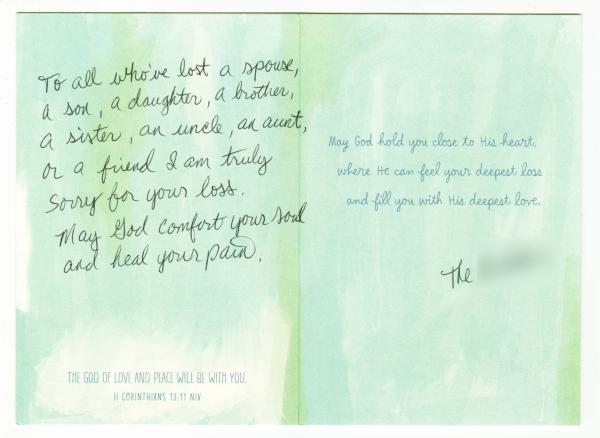 To all who've lost a spouse,
a son, a daughter, a brother,
a sister, an uncle, an aunt,
or a friend I am truly
Sorry for your loss.
May God comfort your soul
and heal your pain.
THE GOD OF LOVE AND PEACE WILL BE WITH YOU.
II CORINTHIANS 13:11 NIV
May God hold you close to His heart,
where He can feel your deepest loss
and fill you with His deepest love.
The